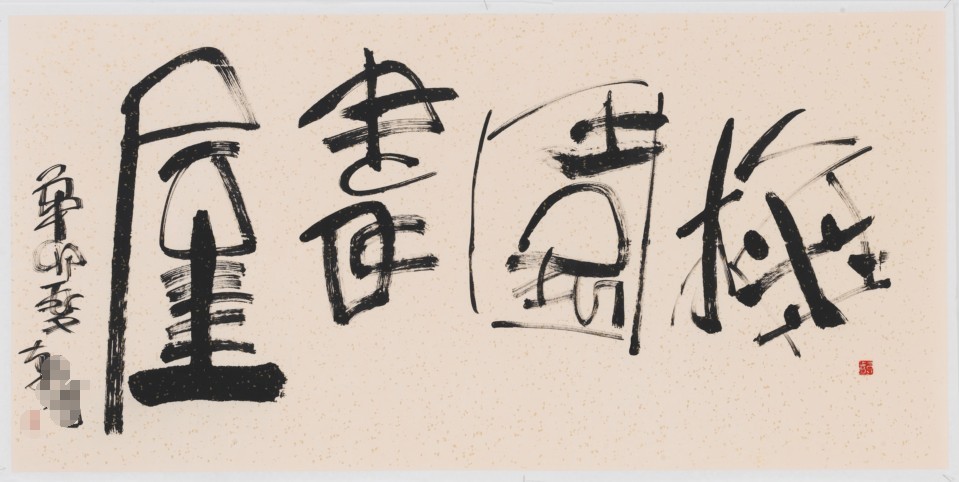 梅園書屋
辛卯夏